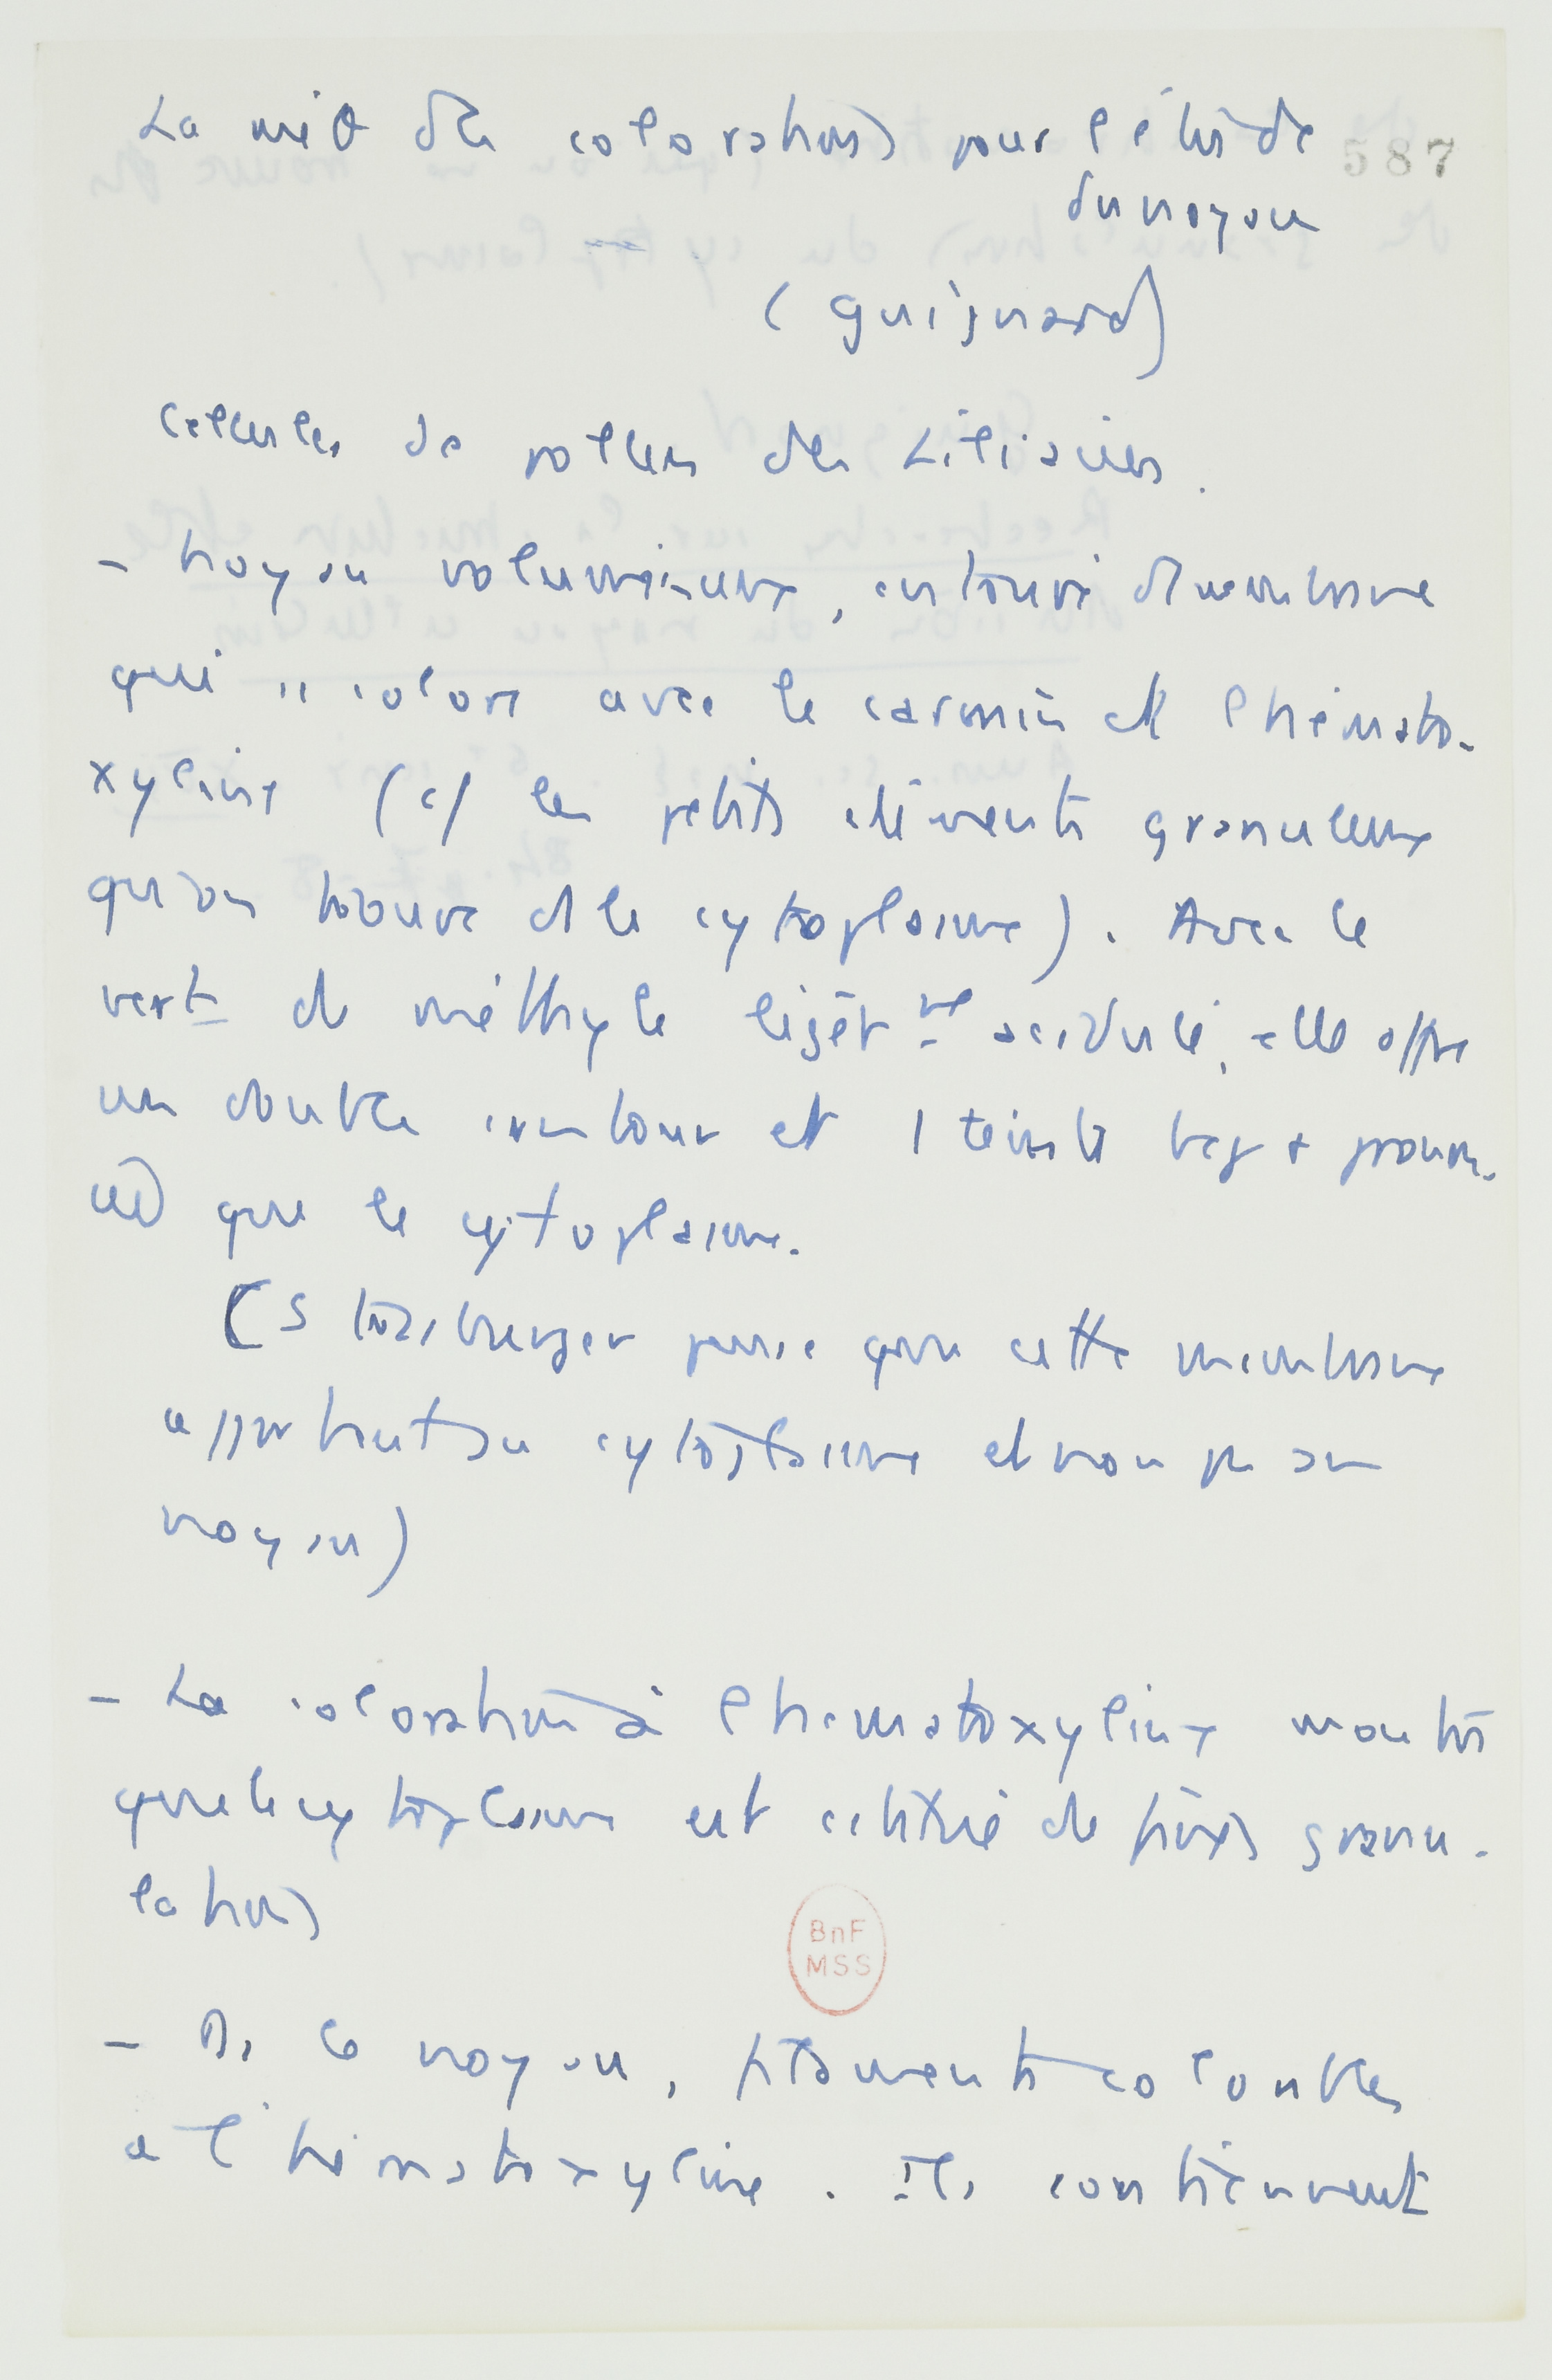 La méθ des colorations pour l'étude
587
du noyau
(Guignard)
Cellules de pollen des Liliacées.
- Noyau volumineux, entouré d'membrane
qui se colore avec le carmin et l'hémato-
xyline (cf les petits éléments granuleux
qu'on trouve ds le cytoplasme). Avec le
vert de méthyle légèrt acidulé, elle offre
un double contour et 1 teinte bcp + pronon-
cée que le cytoplasme.
(Strasburger pense que cette membrane
appartient au cytoplasme et non pas au
noyau)
- La coloration à l'hématoxyline montre
que le cytoplasme est constitué de fines granu-
lations
BnF
MSS
- Ds le noyau, filaments colorables
à l'hématoxyline. Ils contiennent